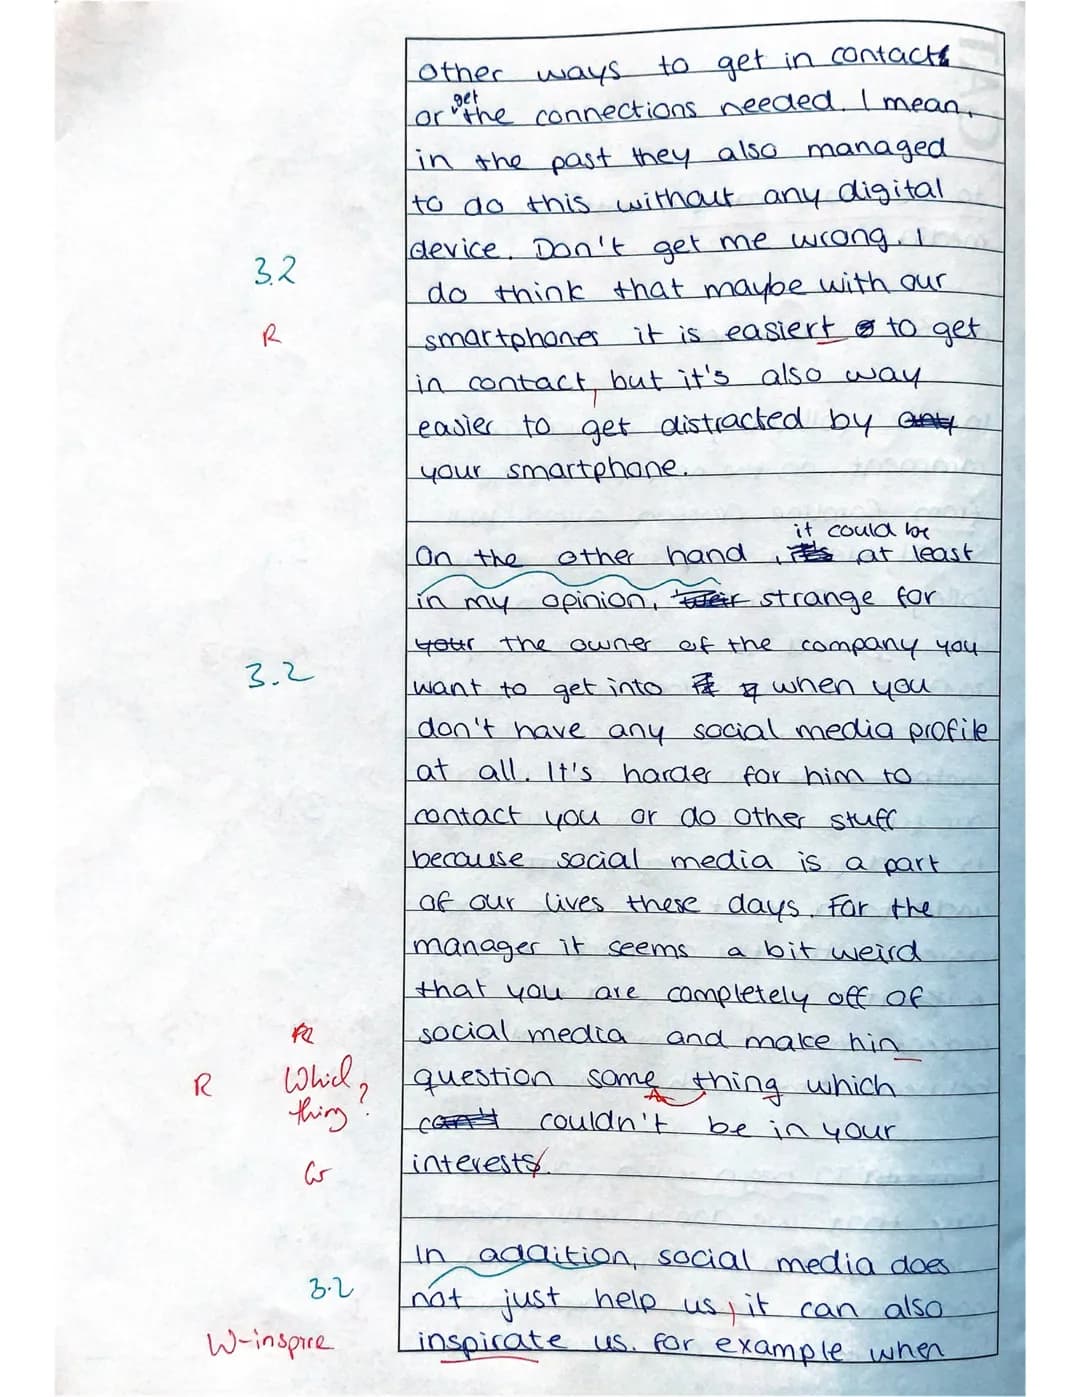 other ways to get in contact
get
or the connections needed. I mean,
in the past they also managed
to do this without any digital
device. Don't get me wrong. I
3.2
do think that maybe with our
R
smartphones it is easiert to get
in contact, but it's also way
easier to get distracted by
your smartphone.
it could be
On the other hand, at least
in my opinion, strange for
your the owner of the company you
3.2
want to get into when you
don't have any social media profile
at all. It's harder for him to
contact you or do other stuff
because social media is a part
of our lives these days. For the
manager it seems a bit weird
that you are completely off of
R
social media and make hin
R Which thing?
question some thing which
can't couldn't be in your
Gr
interests.
In addition, social media does
3.2
not just help us, it can also
W-inspire
inspirate us. For example when